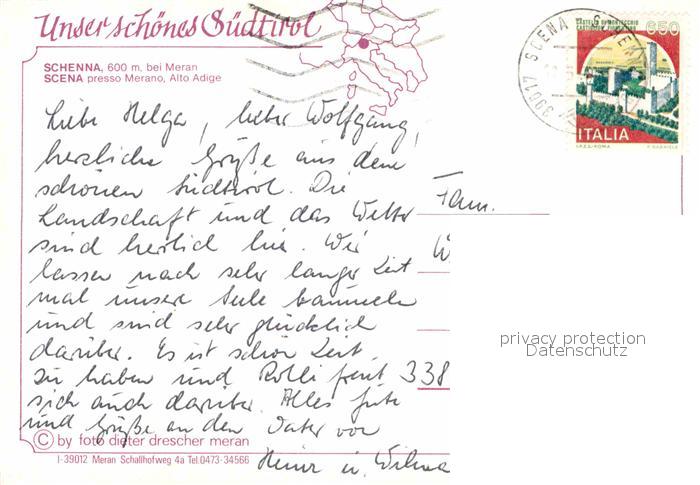 Unser schönes Südtirol
SCHENNA, 600 m, bei Meran
SCENA presso Merano, Alto Adige
39017 SCENA
CASTELLO DI MONTECCHIO
CASTIGLION FIORENTINO
650
ITALIA
I.P.Z.S.-ROMA
Liebe Helga, lieber Wolfgang,
herzliche Grüße aus dem
schönen Südtirol. Die
Landschaft und das Wetter
sind herrlich hier. Wir
lassen nach sehr langer Zeit
mal unsere Seele baumeln
und sind sehr glücklich
darüber. Es ist schön Zeit
zu haben und Rolli freut
sich auch darüber. Alles Gute
und Grüße an den Vater von
Heinr u. Wilma
Fam.
W
338
privacy protection
Datenschutz
© by foto dieter drescher meran
I-39012 Meran Schallhofweg 4a Tel.0473-34566